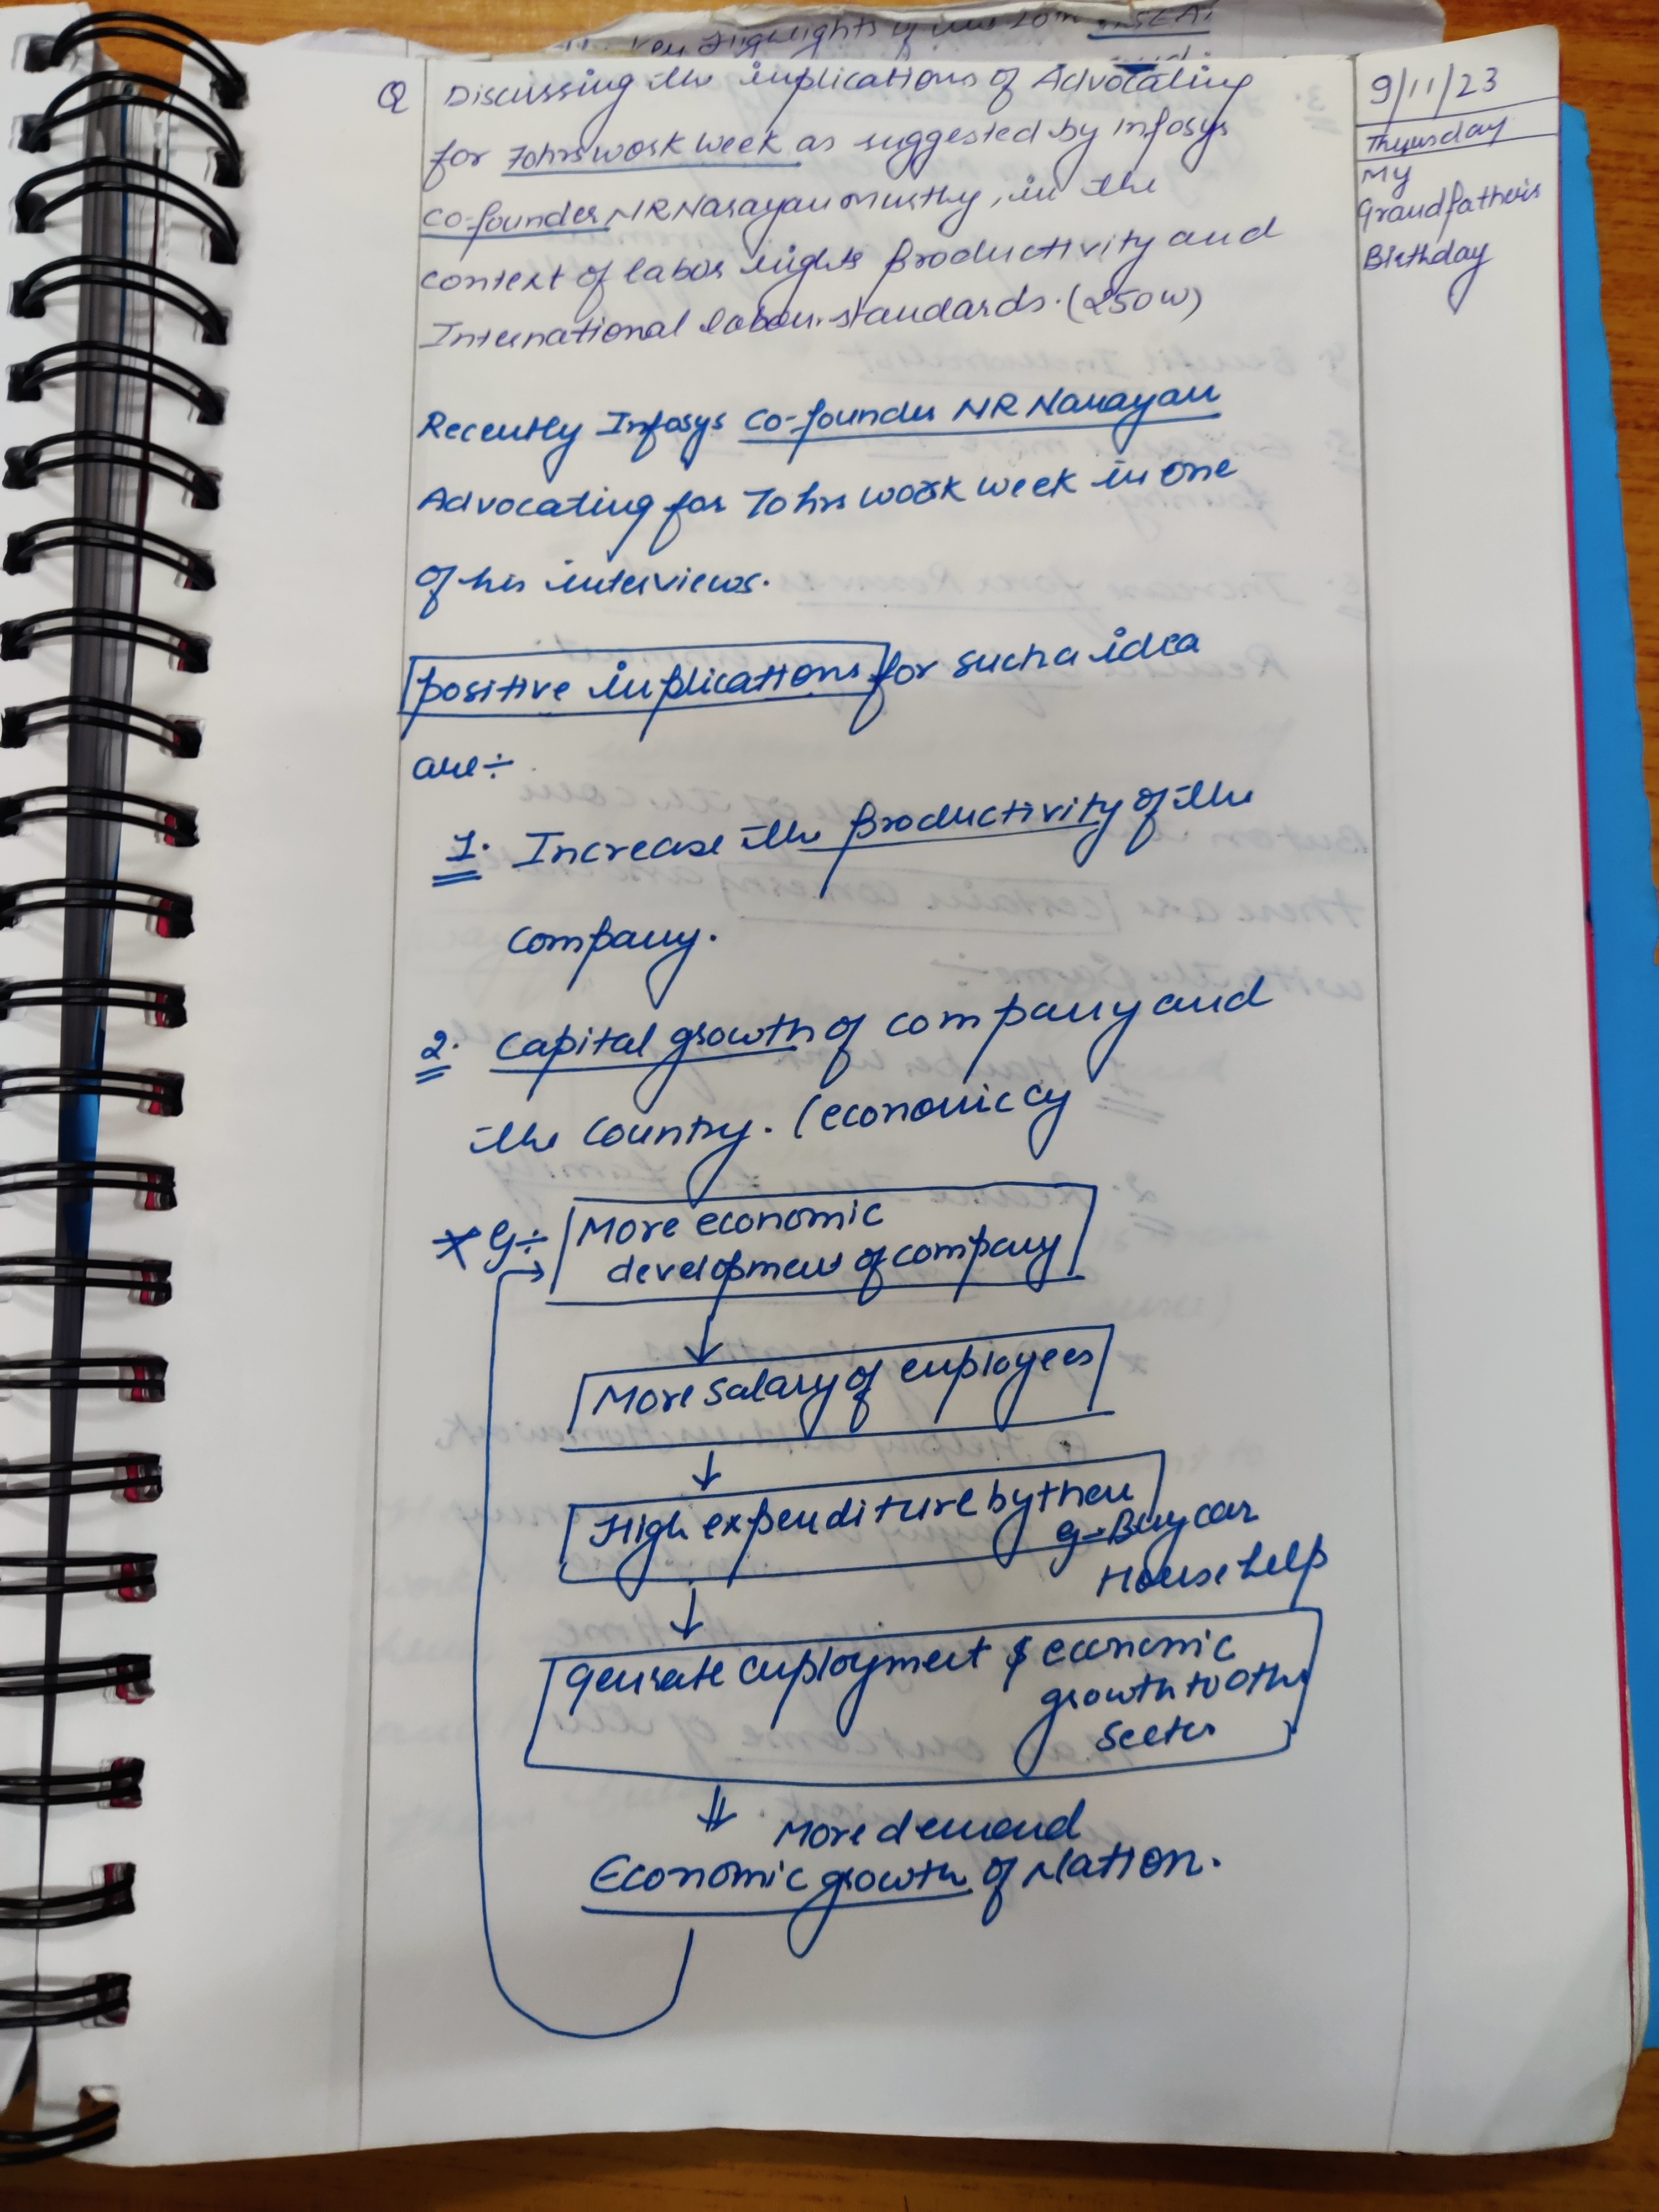 Q Discussing the implications of Advocating
for 70hrs work week as suggested by Infosys
co-founder NR Narayan Murthy, in the
context of labor rights productivity and
International labour standards. (250 W)
9/11/23
Thursday
My
Grandfather's
Birthday
Recently Infosys co-founder NR Narayan
Advocating for 70 hrs work week in one
of his interviews.
positive implications for such a idea
are÷
1. Increase the productivity of the
company.
2. Capital growth of company and
the country. (economic cy
eg÷ More economic
development of company
More salary of employees
High expenditure by them
eg- Buy car
House help
generate employment & economic
growth to othr
secter
More demand
Economic growth of Nation.